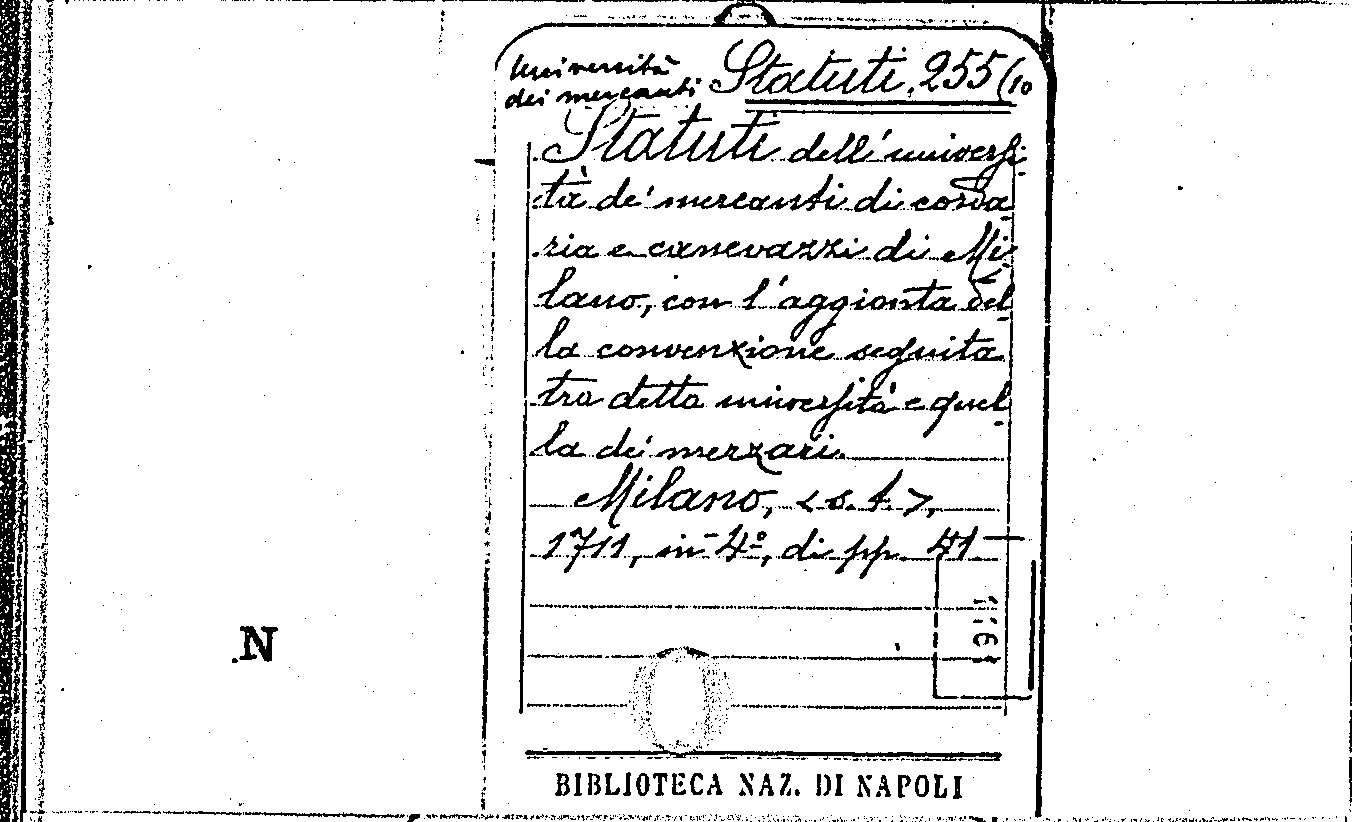 Università
dei mercanti Statuti. 255 (10
Statuti dell'universi-
tà de' mercanti di corda-
ria e canevazzi di Mi-
lano, con l'aggionta del-
la convenzione seguita
tra detta università e quel-
la de' merzari.
Milano, <s. t.>,
1711, in 4º, di pp. 41
N
BIBLIOTECA NAZ. DI NAPOLI